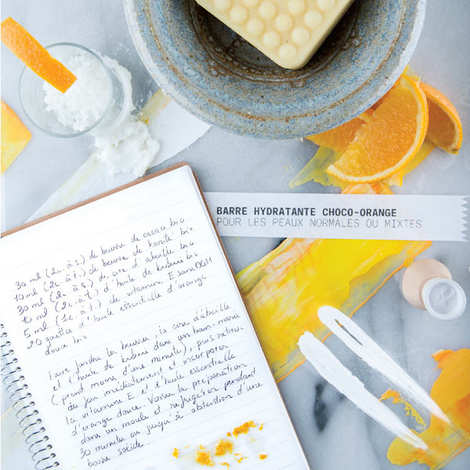 BARRE HYDRATANTE CHOCO-ORANGE
POUR LES PEAUX NORMALES OU MIXTES
30 ml (2 c. à s.) de beurre de cacao bio
10 ml (2 c. à t.) de beurre de karité bio
30 ml (2 c. à s.) de cire d'abeille bio
10 ml (2 c. à t.) d'huile de babassu bio
5 ml (1 c. à t.) de vitamine E
20 gouttes d'huile essentielle d'orange
douce bio
Faire fondre les beurres, la cire d'abeille
et l'huile de babassu dans un bain-marie
(prend moins d'une minute), puis retirer
du feu immédiatement et incorporer
la vitamine E et l'huile essentielle
d'orange douce. Verser la préparation
dans un moule et réfrigérer pendant
30 minutes ou jusqu'à obtention d'une
barre solide.